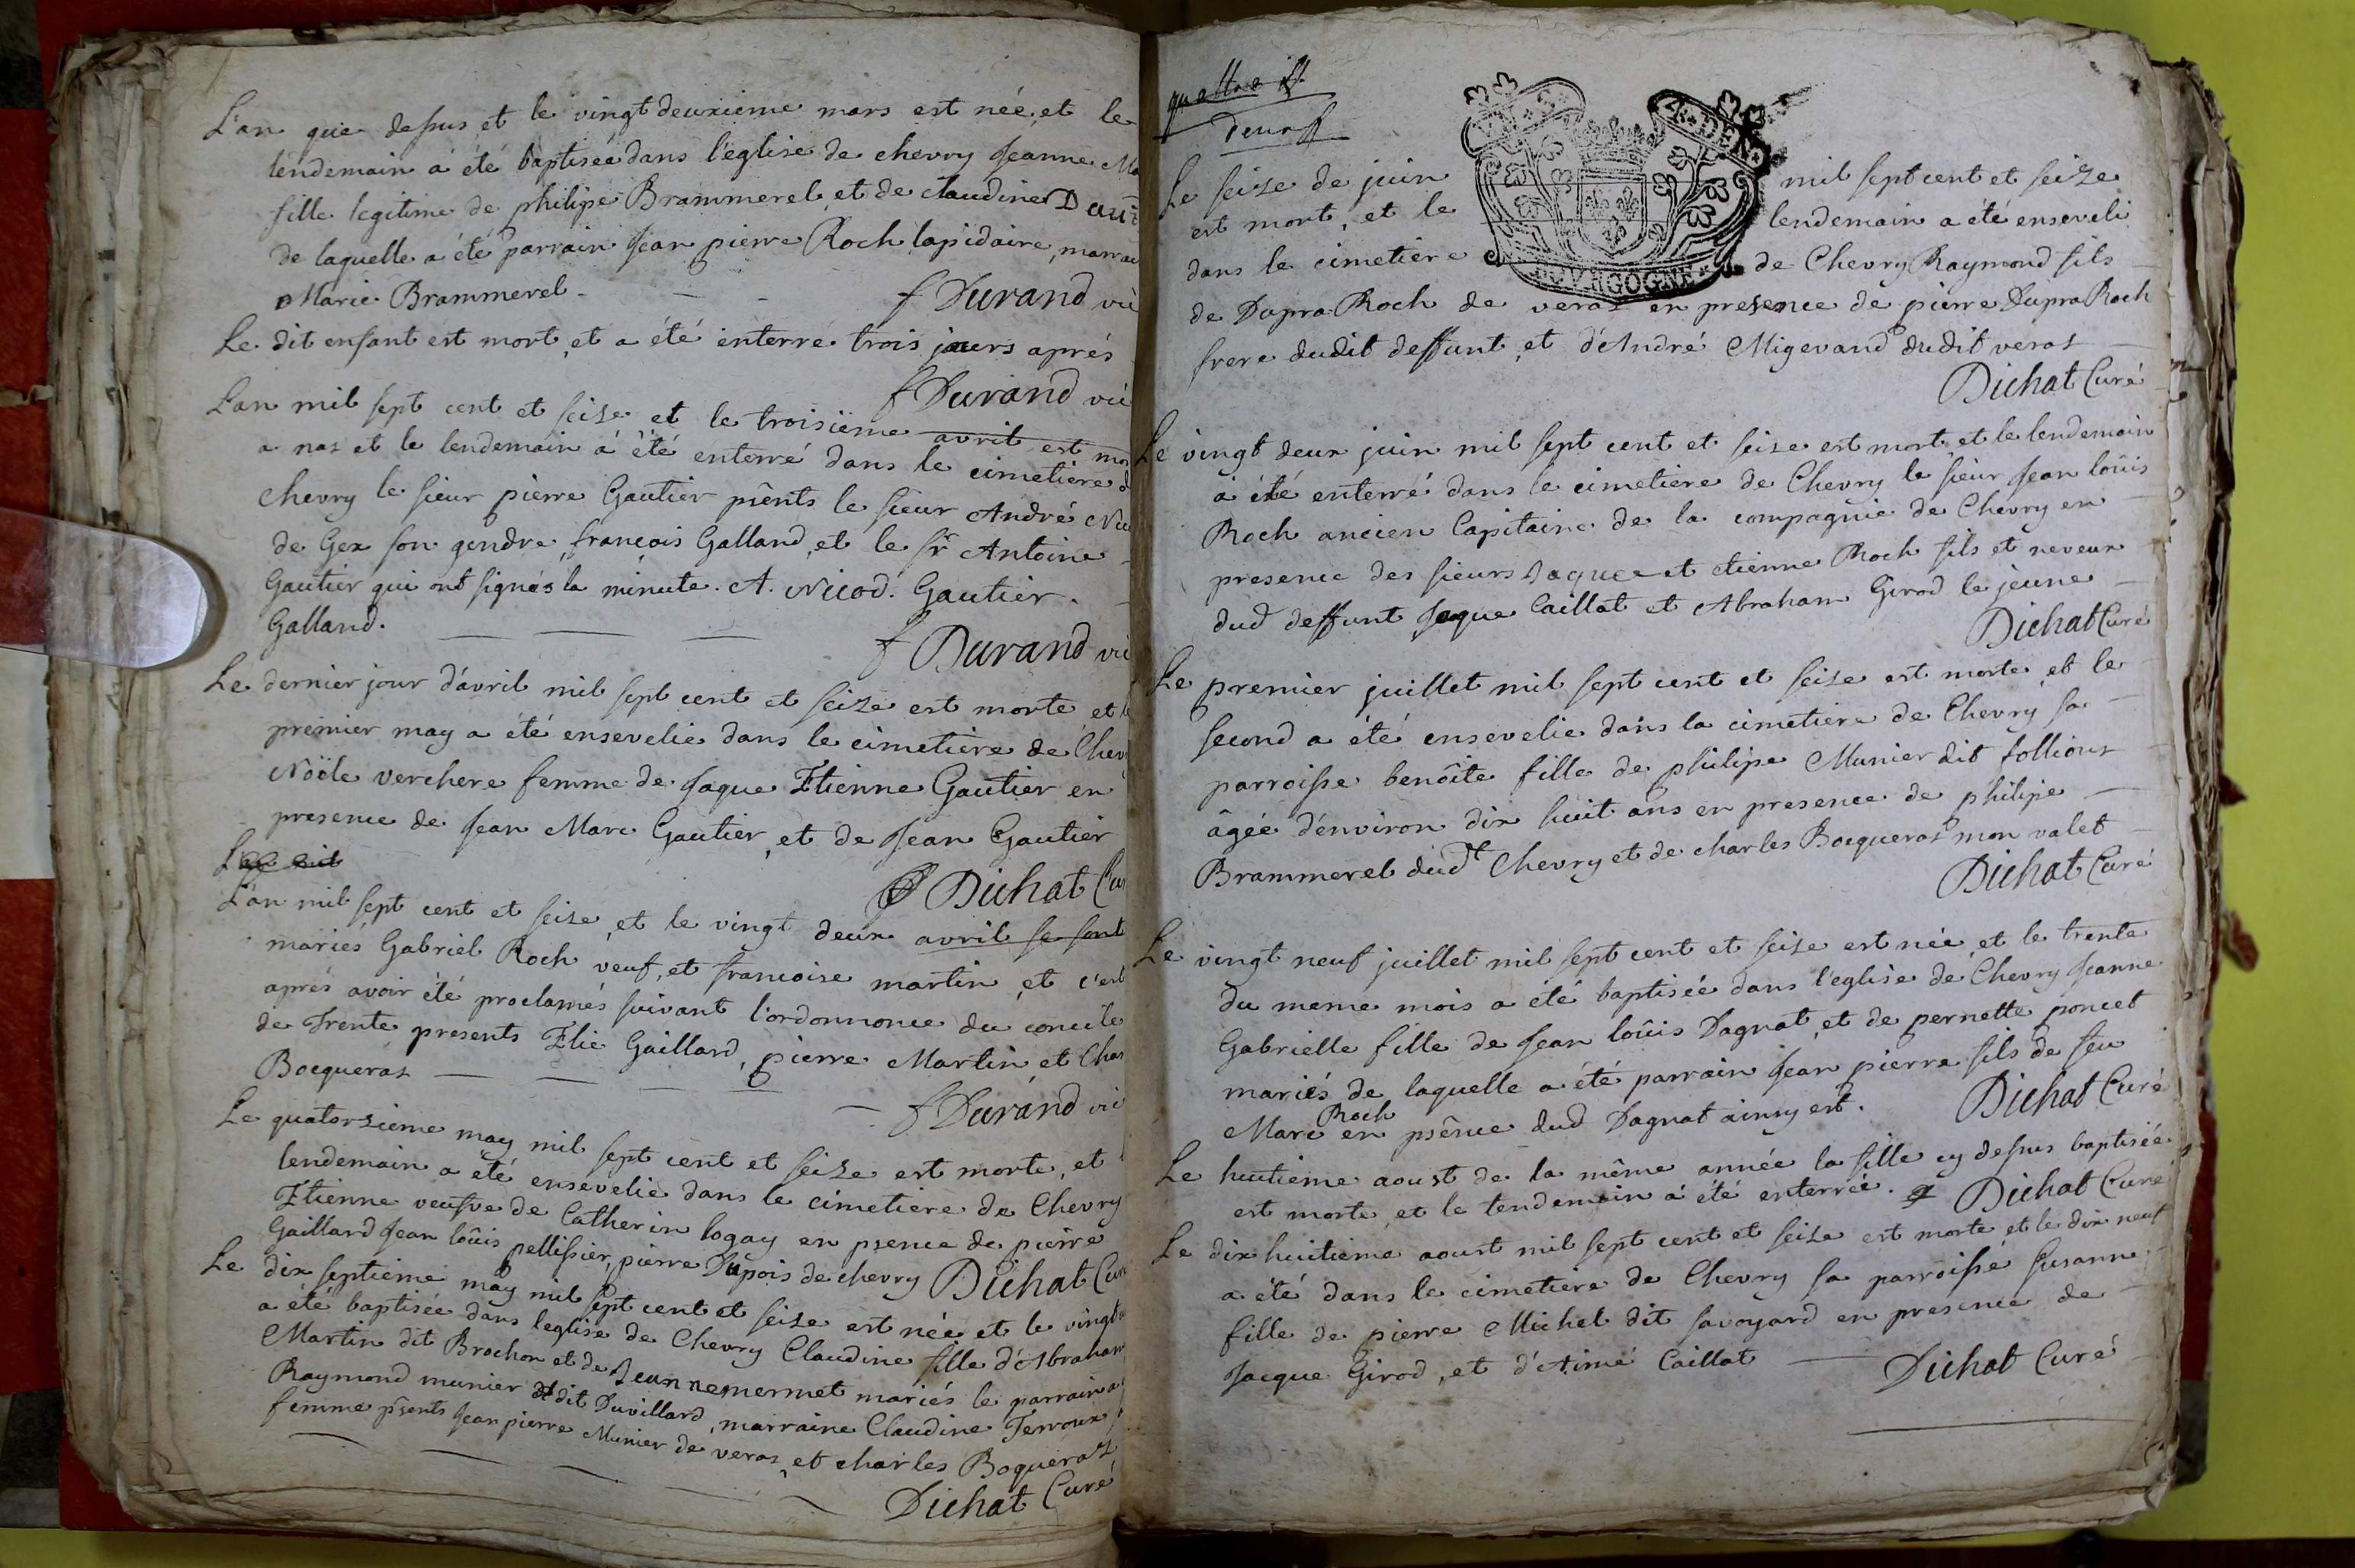 L'an que dessus et le vingt deuxieme mars est née, et le
lendemain a été baptisée dans l'eglise de chevry Jeanne
fille legitime de philipe Brammerel et de claudine
de laquelle a été parrain Jean pierre Roch lapidaire,
Marie Brammerel
f Durand
Le dit enfant est mort, et a été enterré trois jours aprés
f Durand
L'an mil sept cent et seize et le troisième avril est
a nas et le lendemain a été enterré dans le cimetiere
chevry le sieur pierre Gautier pñts le sieur André
de Gex son gendre francois Galland, et le sr Antoine
Gautier qui ont signés la minute. A. Nicod. Gautier.
Galland.
f Durand
Le dernier jour d'avril mil sept cent et seize est morte et
premier may a été ensevelie dans le cimetiere de
Noële verchere femme de Jaque Etienne Gautier en
presence de Jean Marc Gautier, et de Jean Gautier
Dichat
L'an mil sept cent et seize, et le vingt deux avril se sont
mariés Gabriel Roch veuf, et francoise martin, et c'est
aprés avoir été proclamés suivant l'ordonnonce du concile
de Trente presents Elie Gaillard, pierre Martin et
Bocqueras
f Durand
Le quatorzieme may mil sept cent et seize est morte, et
lendemain a été ensevelie dans le cimetiere de Chevry
Etienne veufve de Catherin logay en psence de pierre
Gaillard Jean loûis pellissier, pierre Dupois de chevry Dichat
Le dix septieme may mil sept cent et seize est née et le
a été baptisée dans leglise de Chevry Claudine fille d'Abraham
Martin dit Brochon et de Jeanne mermet mariés le parrain
Raymond munier dit Duvillard, marraine Claudine Terroux
femme pñsents Jean pierre Munier de veraz, et charles Boqueraz
Dichat Curé
quattre
deux
Le seize de juin mil sept cent et seize
est mort, et le lendemain a été enseveli
BOVRGOGNE
dans le cimetiere de Chevry Raymond fils
de Dupra Roch de veraz en presence de pierre Dupra Roch
frere dudit deffunt, et d'André Migevand dudit veraz
Dichat Curé
Le vingt deux juin mil sept cent et seize est mort, et le lendemain
a été enterré dans le cimetiere de Chevry le sieur Jean loûis
Roch ancien Capitaine de la compagnie de Chevry en
presence des sieurs Jaque et etienne Roch fils et neveux
dud deffunt Jaque Caillat et Abraham Girod le jeune
Dichat Curé
Le premier juillet mil sept cent et seize est morte, et le
second a été ensevelie dans la cimetiere de Chevry sa
parroisse benôite fille de philipe Munier dit follioux
âgée d'environ dix huit ans en presence de philipe
Brammerel dudt Chevry et de charles Bocqueras mon valet
Dichat Curé
Le vingt neuf juillet mil sept cent et seize est née et le trente
du meme mois a été baptisée dans l'eglise de Chevry Jeanne
Gabrielle fille de Jean loûis Dagnat, et de pernette poncet
mariés de laquelle a été parrain Jean pierre fils de feu
Marc Roch en psênce dud Dagnat ainsy est. Dichat Curé
Le huitieme aoust de la même année la fille cy dessus baptisée
est morte, et le lendemain a été enterrée. Dichat Curé
Le dix huitieme aoust mil sept cent et seize est morte et le dix neuf
a été dans le cimetiere de Chevry sa parroisse Susanne
fille de pierre Michel dit savoyard en presence de
Jacque Girod, et d'Aimé Caillat
Dichat Curé